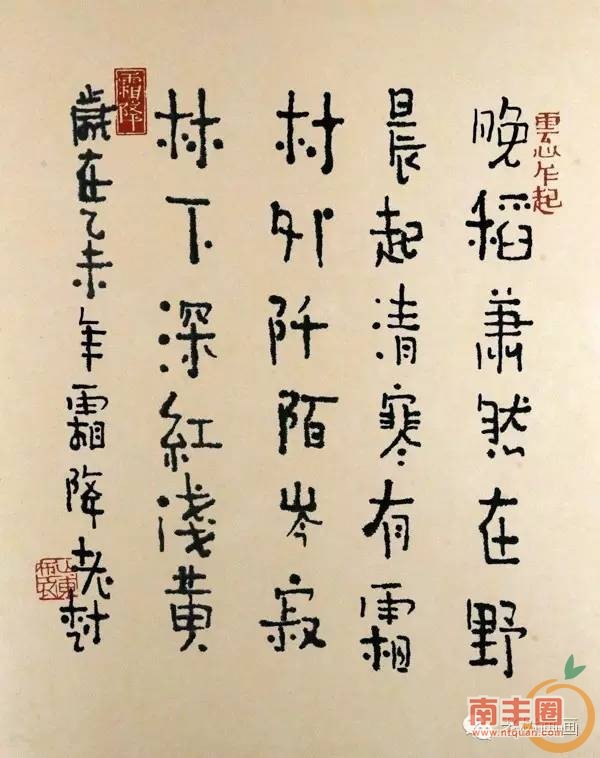 雲心乍起
晚稻蕭然在野
晨起清寒有霜
村外阡陌岑寂
林下深紅淺黃
霜降
歲在乙未年霜降老樹
南丰圈
www.nfquan.com